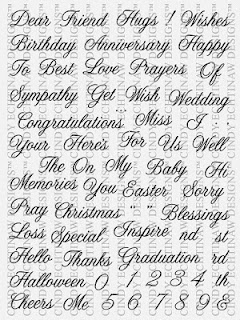 Dear Friend Hugs ! Wishes
Birthday Anniversary Happy
To Best Love Prayers Of
Sympathy Get Wish Wedding
Congratulations Miss I
Your Here's For Us Well
The On My Baby Hi
Memories You Easter Sorry
Pray Christmas " " Blessings
Loss Special Inspire nd st
Hello Thanks Graduation rd
Halloween 0 1 2 3 4 th
Cheers Me 5 6 7 8 9 &